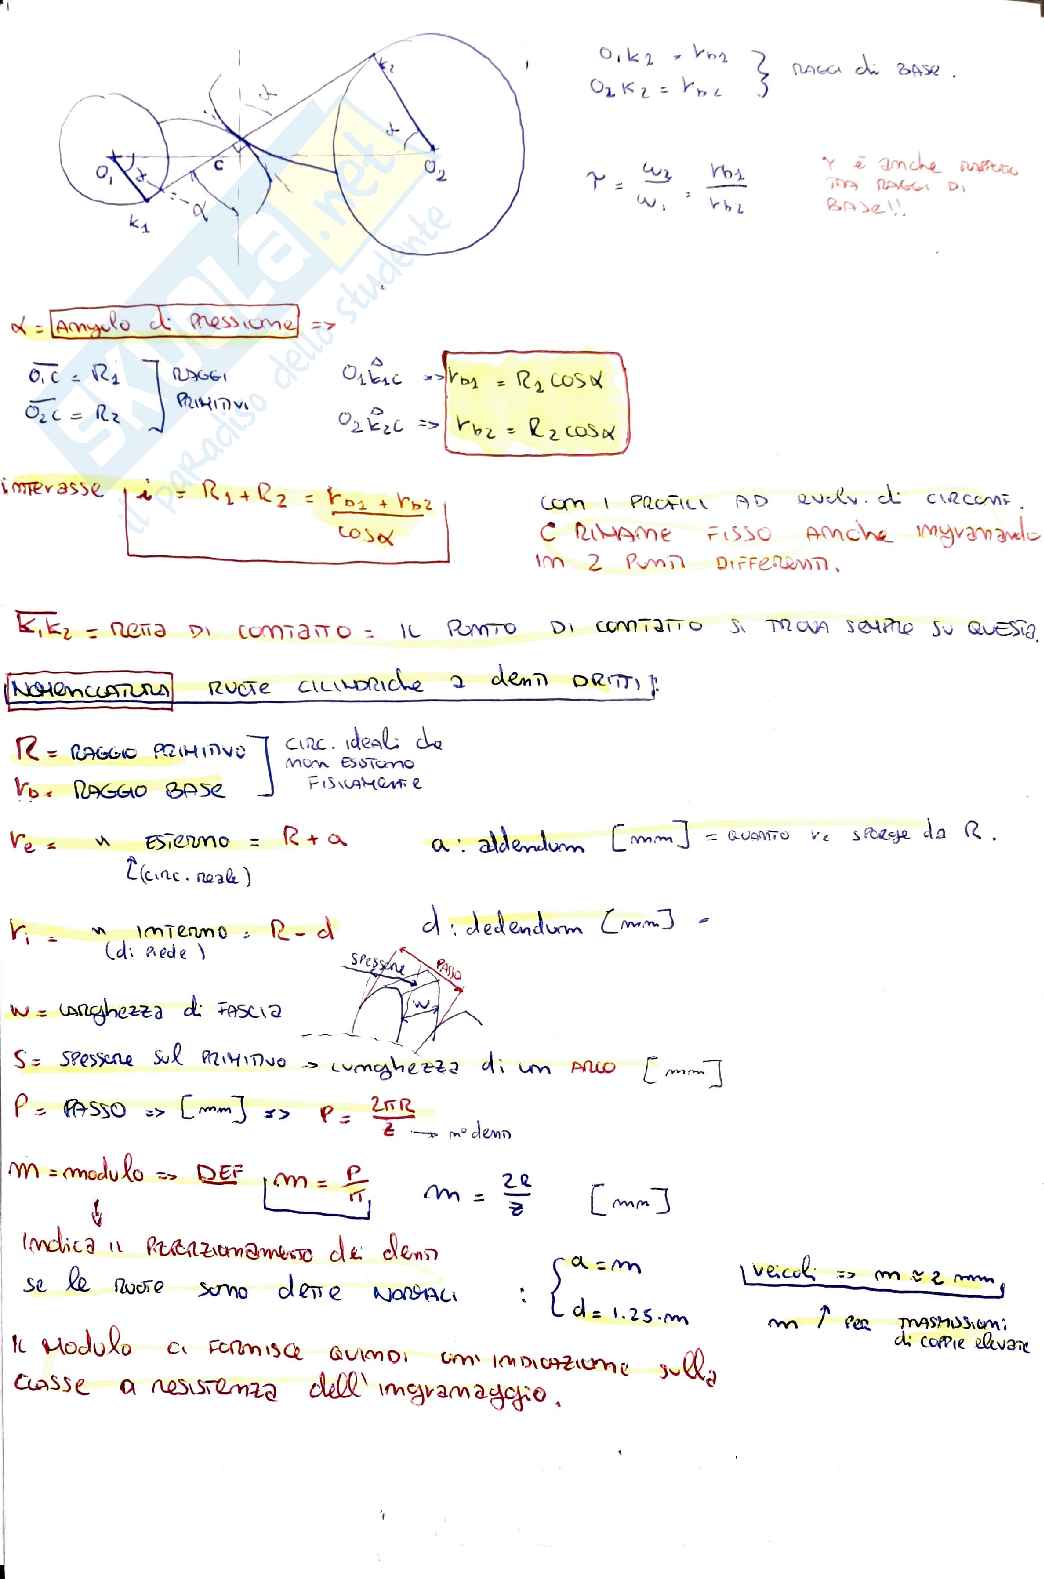 O₁k₂ = rb2
O₂k₂ = rb2
} RAGGI di BASE.
k₂
α
α
O₁
α
C
O₂
α
k₁
τ = ω₂/ω₁ = rb1/rb2
τ è anche RAPPORTO
TRA RAGGI DI
BASE!!
SKUOLA.net
il paradiso dello studente
α = Angolo di Pressione =>
O₁C = R₁
O₂C = R₂
RAGGI
PRIMITIVI
O₁k̂₁C => rb1 = R₁ cosα
O₂k̂₂C => rb2 = R₂ cosα
interasse i = R₁ + R₂ = (rb1 + rb2)/cosα
con i PROFILI AD evolv. di CIRCONF.
C RIMANE FISSO ANCHE ingranando
in 2 PUNTI DIFFERENTI.
K₁K₂ = RETTA DI CONTATTO = IL PUNTO DI CONTATTO SI TROVA SEMPRE SU QUESTA.
NOMENCLATURA RUOTE CILINDRICHE a denti DRITTI:
R = RAGGIO PRIMITIVO
rb = RAGGIO BASE
CIRC. ideali che
non ESISTONO
FISICAMENTE
re = " ESTERNO = R + a
(circ. reale)
a: addendum [mm] = QUANTO re SPORGE da R.
ri = " INTERNO = R - d
(di piede)
d: dedendum [mm] =
SPESSORE
PASSO
W
w = LARGHEZZA di FASCIA
S = SPESSORE sul PRIMITIVO -> lunghezza di un ARCO [mm]
P = PASSO => [mm] => P = 2πR/z -> n° denti
m = modulo => DEF m = P/π m = 2R/z [mm]
Indica il PROPORZIONAMENTO dei denti
se le RUOTE sono dette NORMALI : { a = m
d = 1.25·m
veicoli => m ≈ 2 mm,
m ↑ PER TRASMISSIONI
di COPPIE elevate
IL MODULO ci FORNISCE QUINDI un'INDICAZIONE sulla
CLASSE a RESISTENZA dell'ingranaggio.